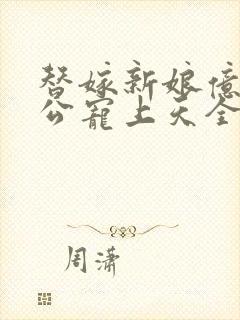 替嫁新娘亿
公宠上天全
周潇